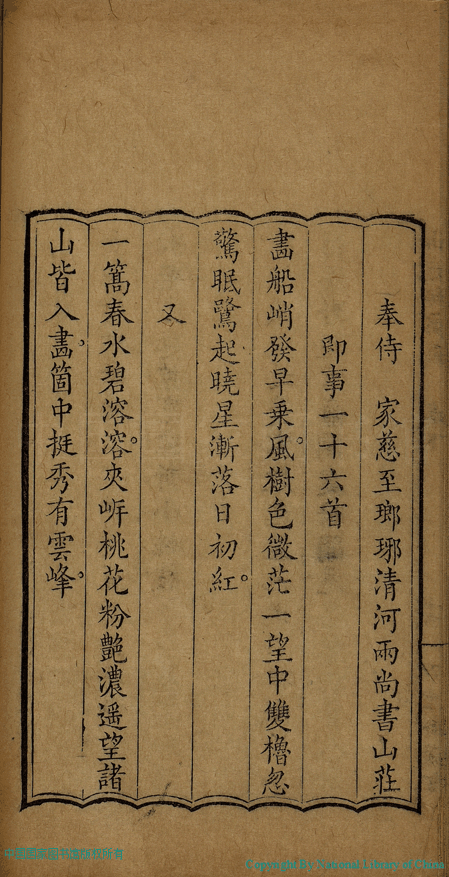 奉侍　家慈至瑯琊清河兩尚書山莊
即事一十六首
畵船峭發早乘風。樹色微茫一望中雙櫓忽
驚眠鷺起曉星漸落日初紅。
又
一篙春水碧溶溶。夾岸桃花粉艷濃遥望諸
山皆入畵。箇中挺秀有雲峰。
中國國家图书馆版权所有
Copyright By National Library of China